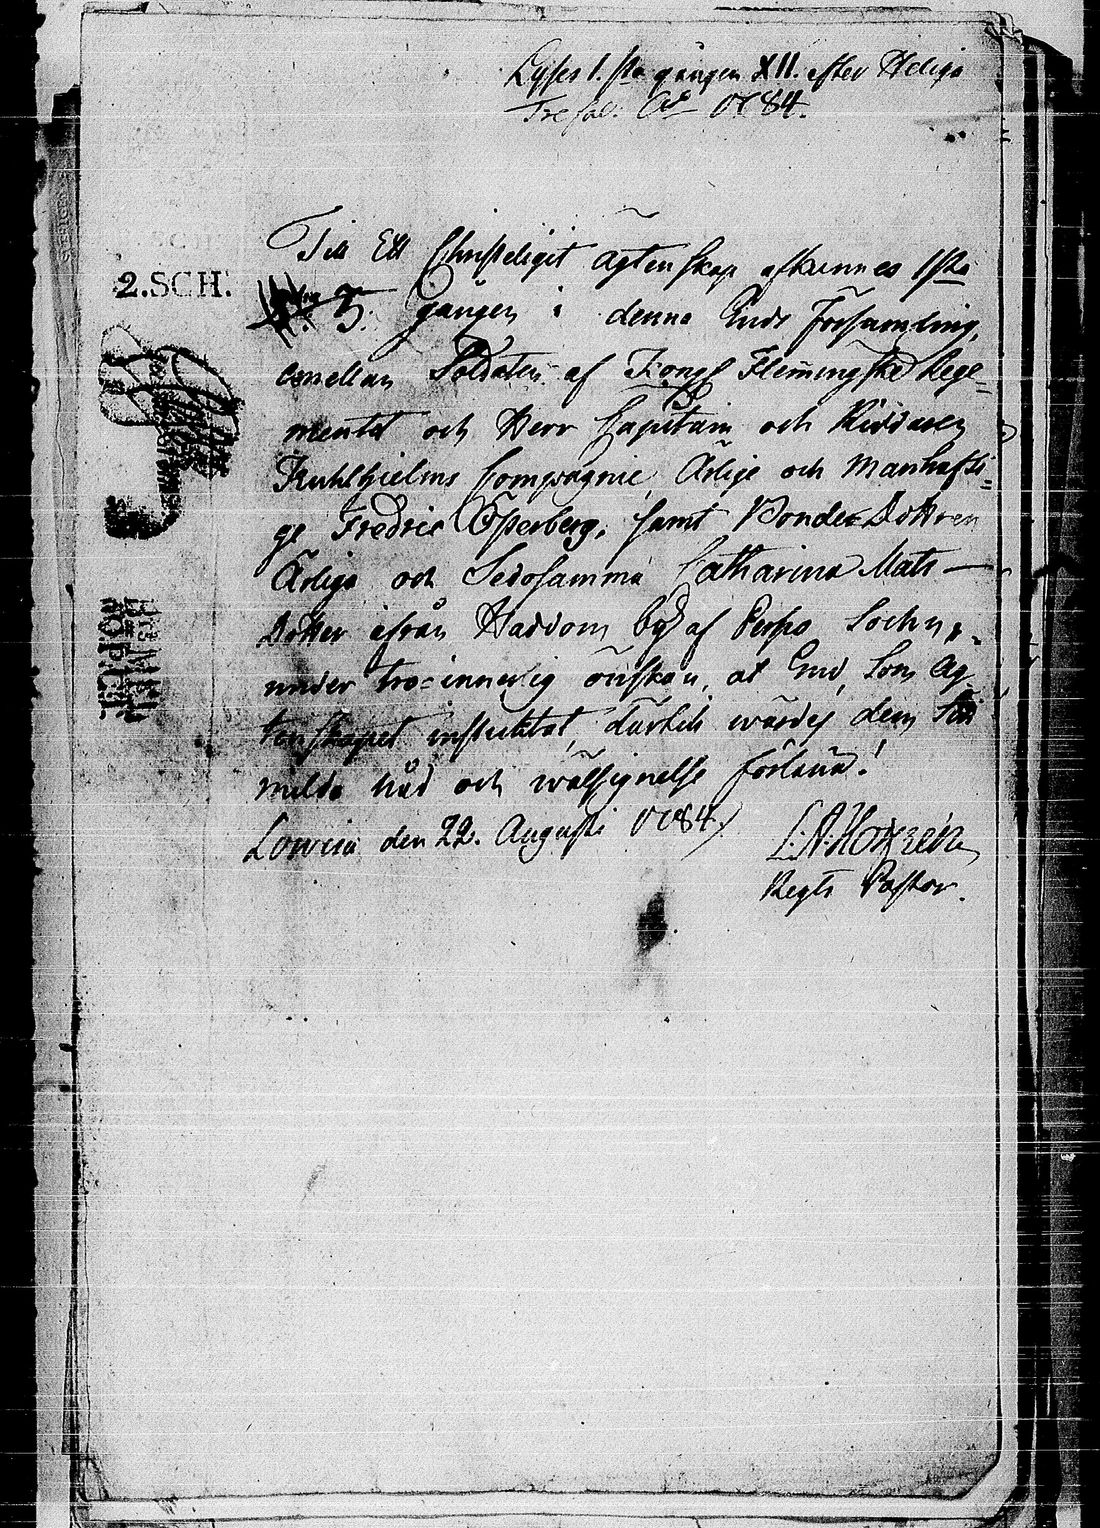 Lyses 1.sta gången XII. efter Heliga
Trefal. Aº 1784.
Till Ett Christeligit ägtenskap afkunnes 1sta
3. gången i denna Guds Församling,
emellan Soldaten af Kongl Flemingska Rege-
mentet och Herr Capitain och Riddaren
Kuhlhjelms Compagnie, Ärlige och Manhafti-
ge Fredric Österberg, samt Bonde Dottren
Ärliga och Sedosamma Catharina Mats-
dotter ifrån Haddom By af Perno Sochn,
under tro-innerlig önskan, at Gud, som Äg-
tenskapet instichtat, därtill wärdes dem Sin
milda nåd och wälsignelse förläna!
Lowisa den 22. Augusti 1784.
Regts Pastor.
2.SCH.